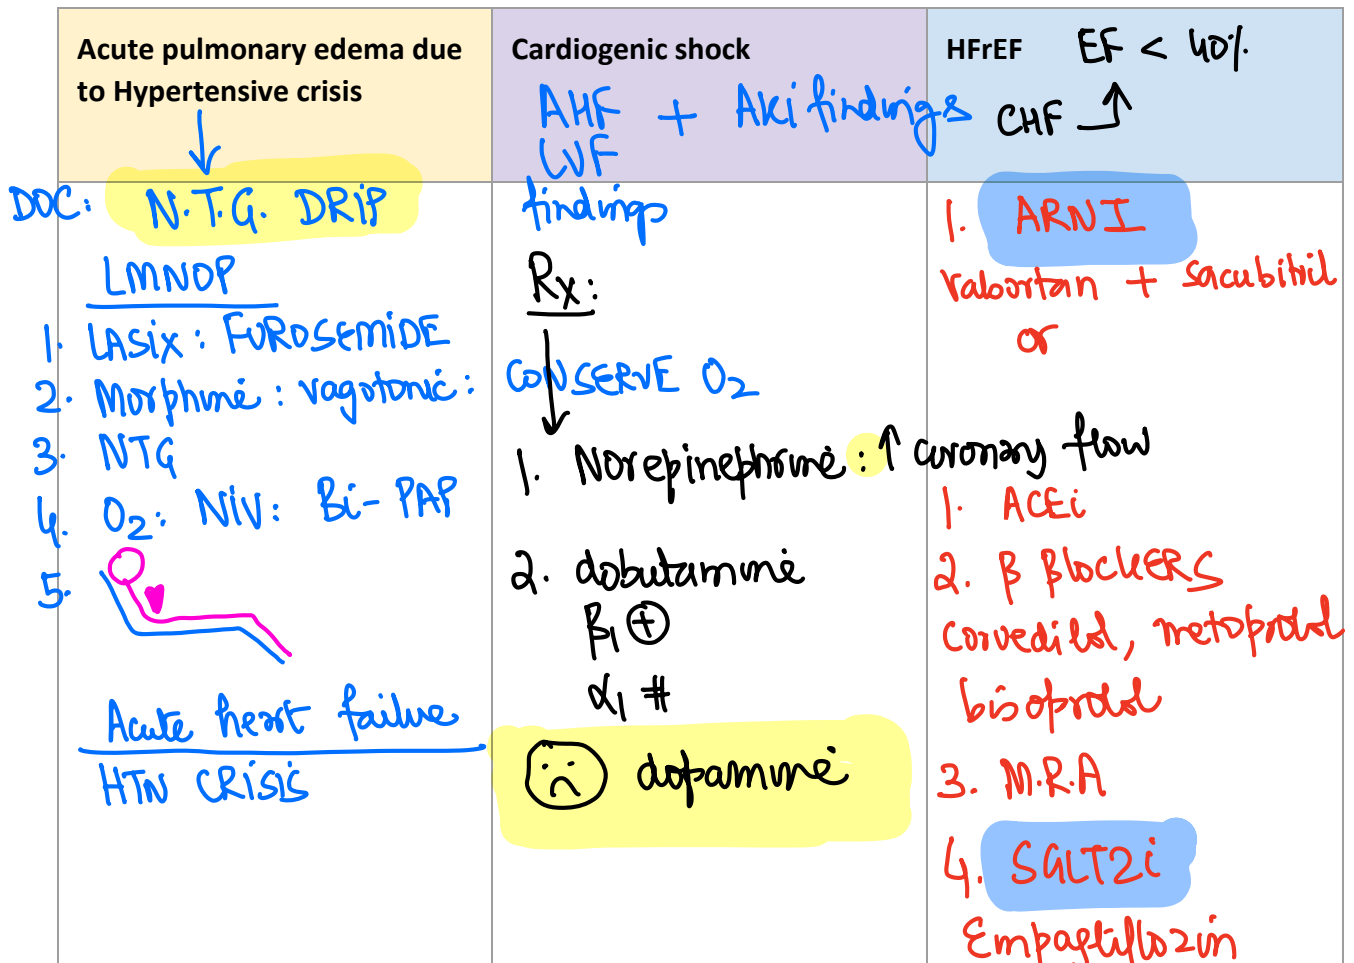 Acute pulmonary edema due
to Hypertensive crisis
DOC: N.T.G. DRiP
LMNOP
1. LASix : FUROSEMiDE
2. Morphine : vagotonic :
3. NTG
4. O2 : NiV : Bi-PAP
5.
Acute heart failure
HTN CRiSiS
Cardiogenic shock
AHF + AKi findings
LVF
findings
Rx :
CONSERVE O2
1. Norepinephrine : ↑ coronary flow
2. dobutamine
β1 ⊕
α1 #
dopamine
HFrEF EF < 40%
CHF
1. ARNI
valsartan + sacubitril
or
1. ACEi
2. β BLOCKERS
carvedilol, metoprolol
bisoprolol
3. M.R.A
4. SGLT2i
Empagliflozin